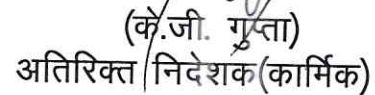 (के.जी. गुप्ता)
अतिरिक्त निदेशक(कार्मिक)